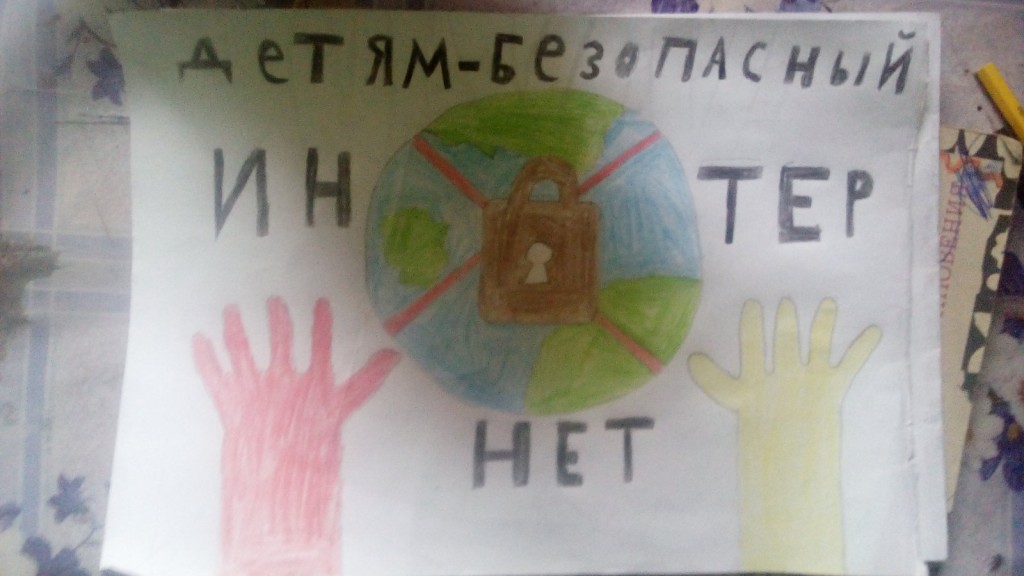 ДеТЯМ-БеЗОПАСНЫЙ
ИН ТЕР
НЕТ